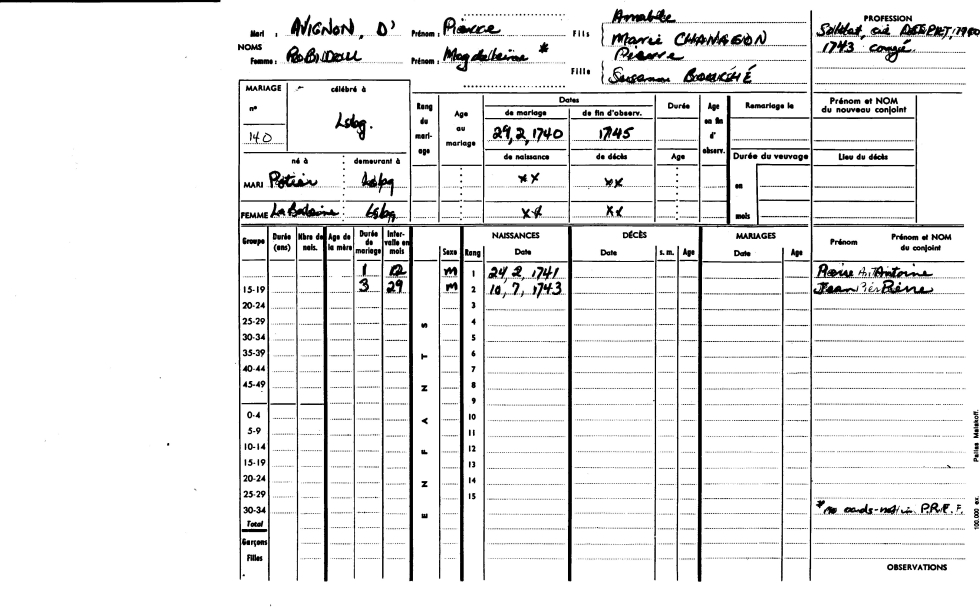 Mari : AVIGNON, D' Prénom : Pierre Fils Amable
Marie CHANAGON
NOMS
Femme : ROBIDOU Prénom : Magdeleine * Fille Pierre
Susanne
PROFESSION
Soldat, cie 1740
1743 congé
MARIAGE célébré à
n° 140 Lsbg.
Rang du mariage
Age au mariage
Dates
de mariage de fin d'observ.
29, 2, 1740 1745
de naissance de décès
Durée
Age
Age en fin d' observ.
Remariage le
Durée du veuvage
en
mois
Prénom et NOM du nouveau conjoint
Lieu du décès
né à demeurant à
MARI Potier Lsbg xx xx
FEMME La Baleine Lsbg xx xx
Groupe Durée (ans) Nbre de nais. Age de la mère Durée de mariage Inter-valle en mois
ENFANTS
Sexe Rang
NAISSANCES Date
DÉCÈS Date s. m. Age
MARIAGES Date Age
Prénom Prénom et NOM du conjoint
1 12 M 1 24, 2, 1741 Pierre Antoine
15-19 3 29 M 2 10, 7, 1743 Jean Pierre
20-24 3
25-29 4
30-34 5
35-39 6
40-44 7
45-49 8
9
0-4 10
5-9 11
10-14 12
15-19 13
20-24 14
25-29 15
30-34 * no cards - not in P.R.F.
Total
Garçons
Filles
OBSERVATIONS
100.000 ex. Malakoff.